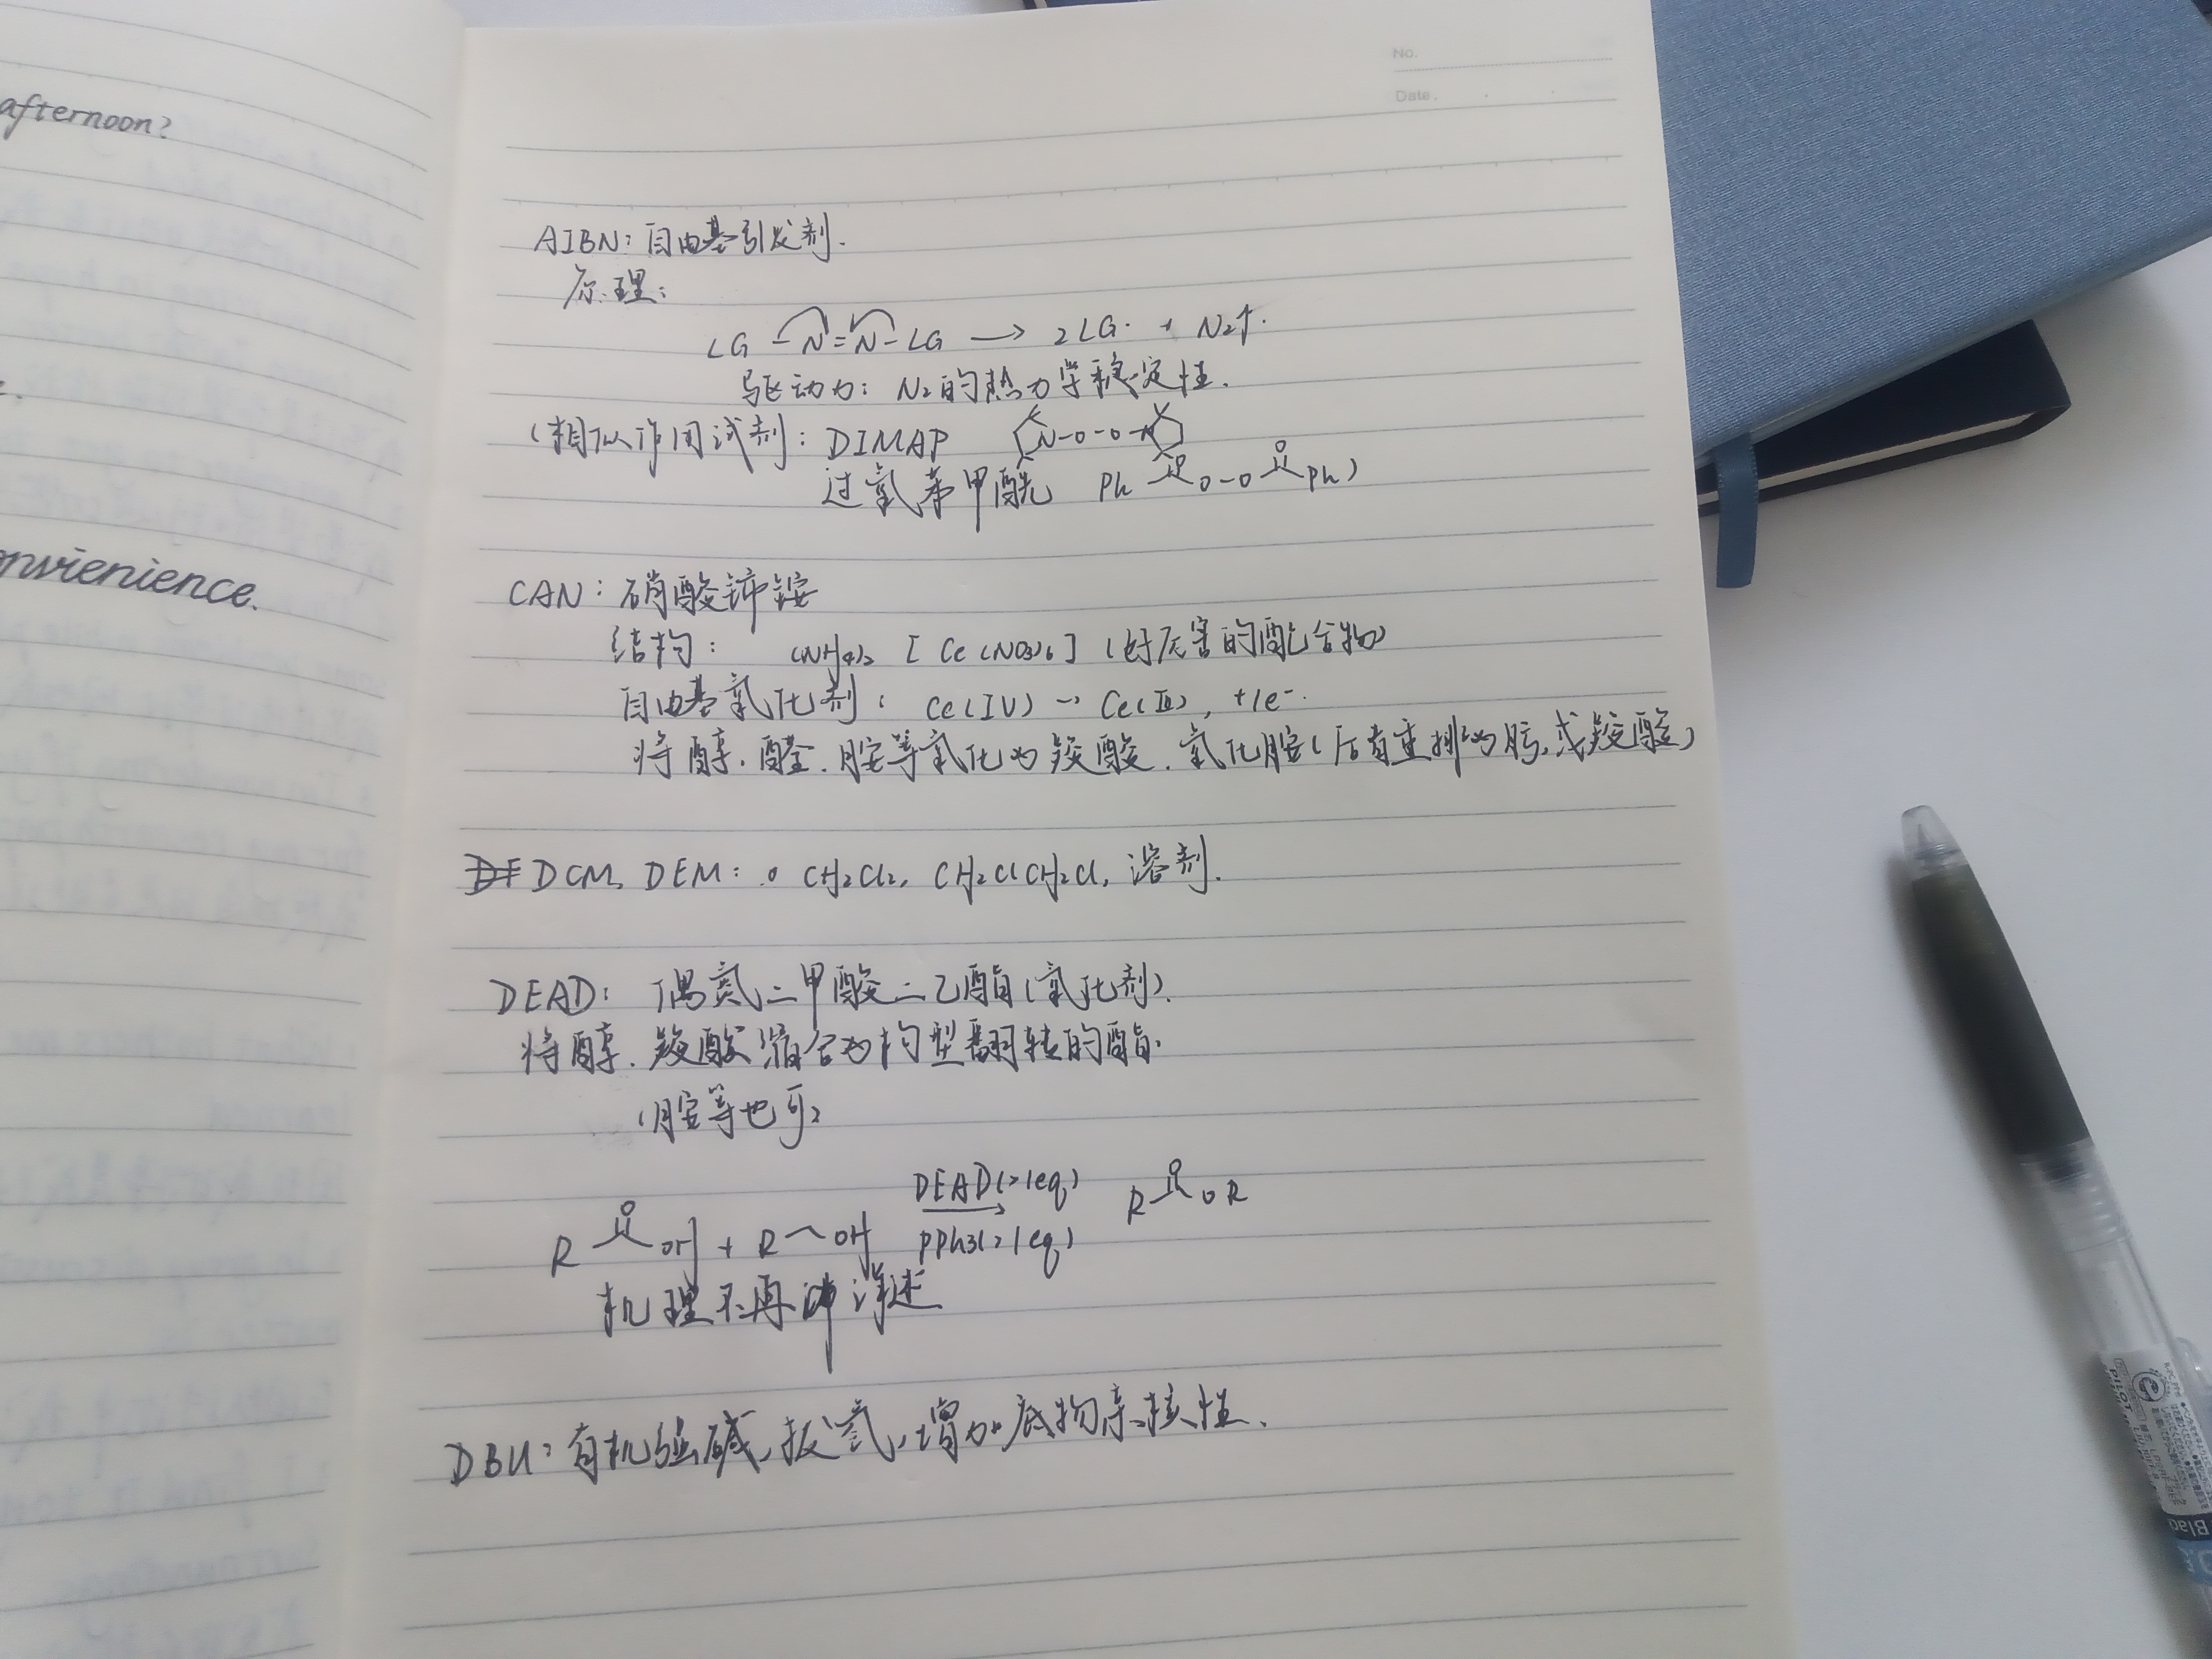 afternoon?
onvienience.
No.
Date.
AIBN: 自由基引发剂.
原理:
LG - N = N - LG → 2LG· + N2↑.
驱动力: N2的热力学稳定性.
(相似作用试剂: DIMAP N-O-O-N
过氧苯甲酰 Ph O O-O O Ph)
CAN: 硝酸铈铵
结构: (NH4)2 [Ce(NO3)6] (好厉害的配合物)
自由基氧化剂: Ce(IV) → Ce(III), +1e-.
将醇.醛.胺等氧化为羧酸.氧化胺(后者重排为肟,或羧酸)
DCM, DEM: CH2Cl2, CH2ClCH2Cl, 溶剂.
DEAD: 偶氮二甲酸二乙酯(氧化剂).
将醇.羧酸缩合为构型翻转的酯.
(胺等也可)
R O OH + R OH DEAD(>1eq) PPh3(>1eq) R O OR
机理不再详述
DBU: 有机强碱,拔氢,增加底物亲核性.
Black